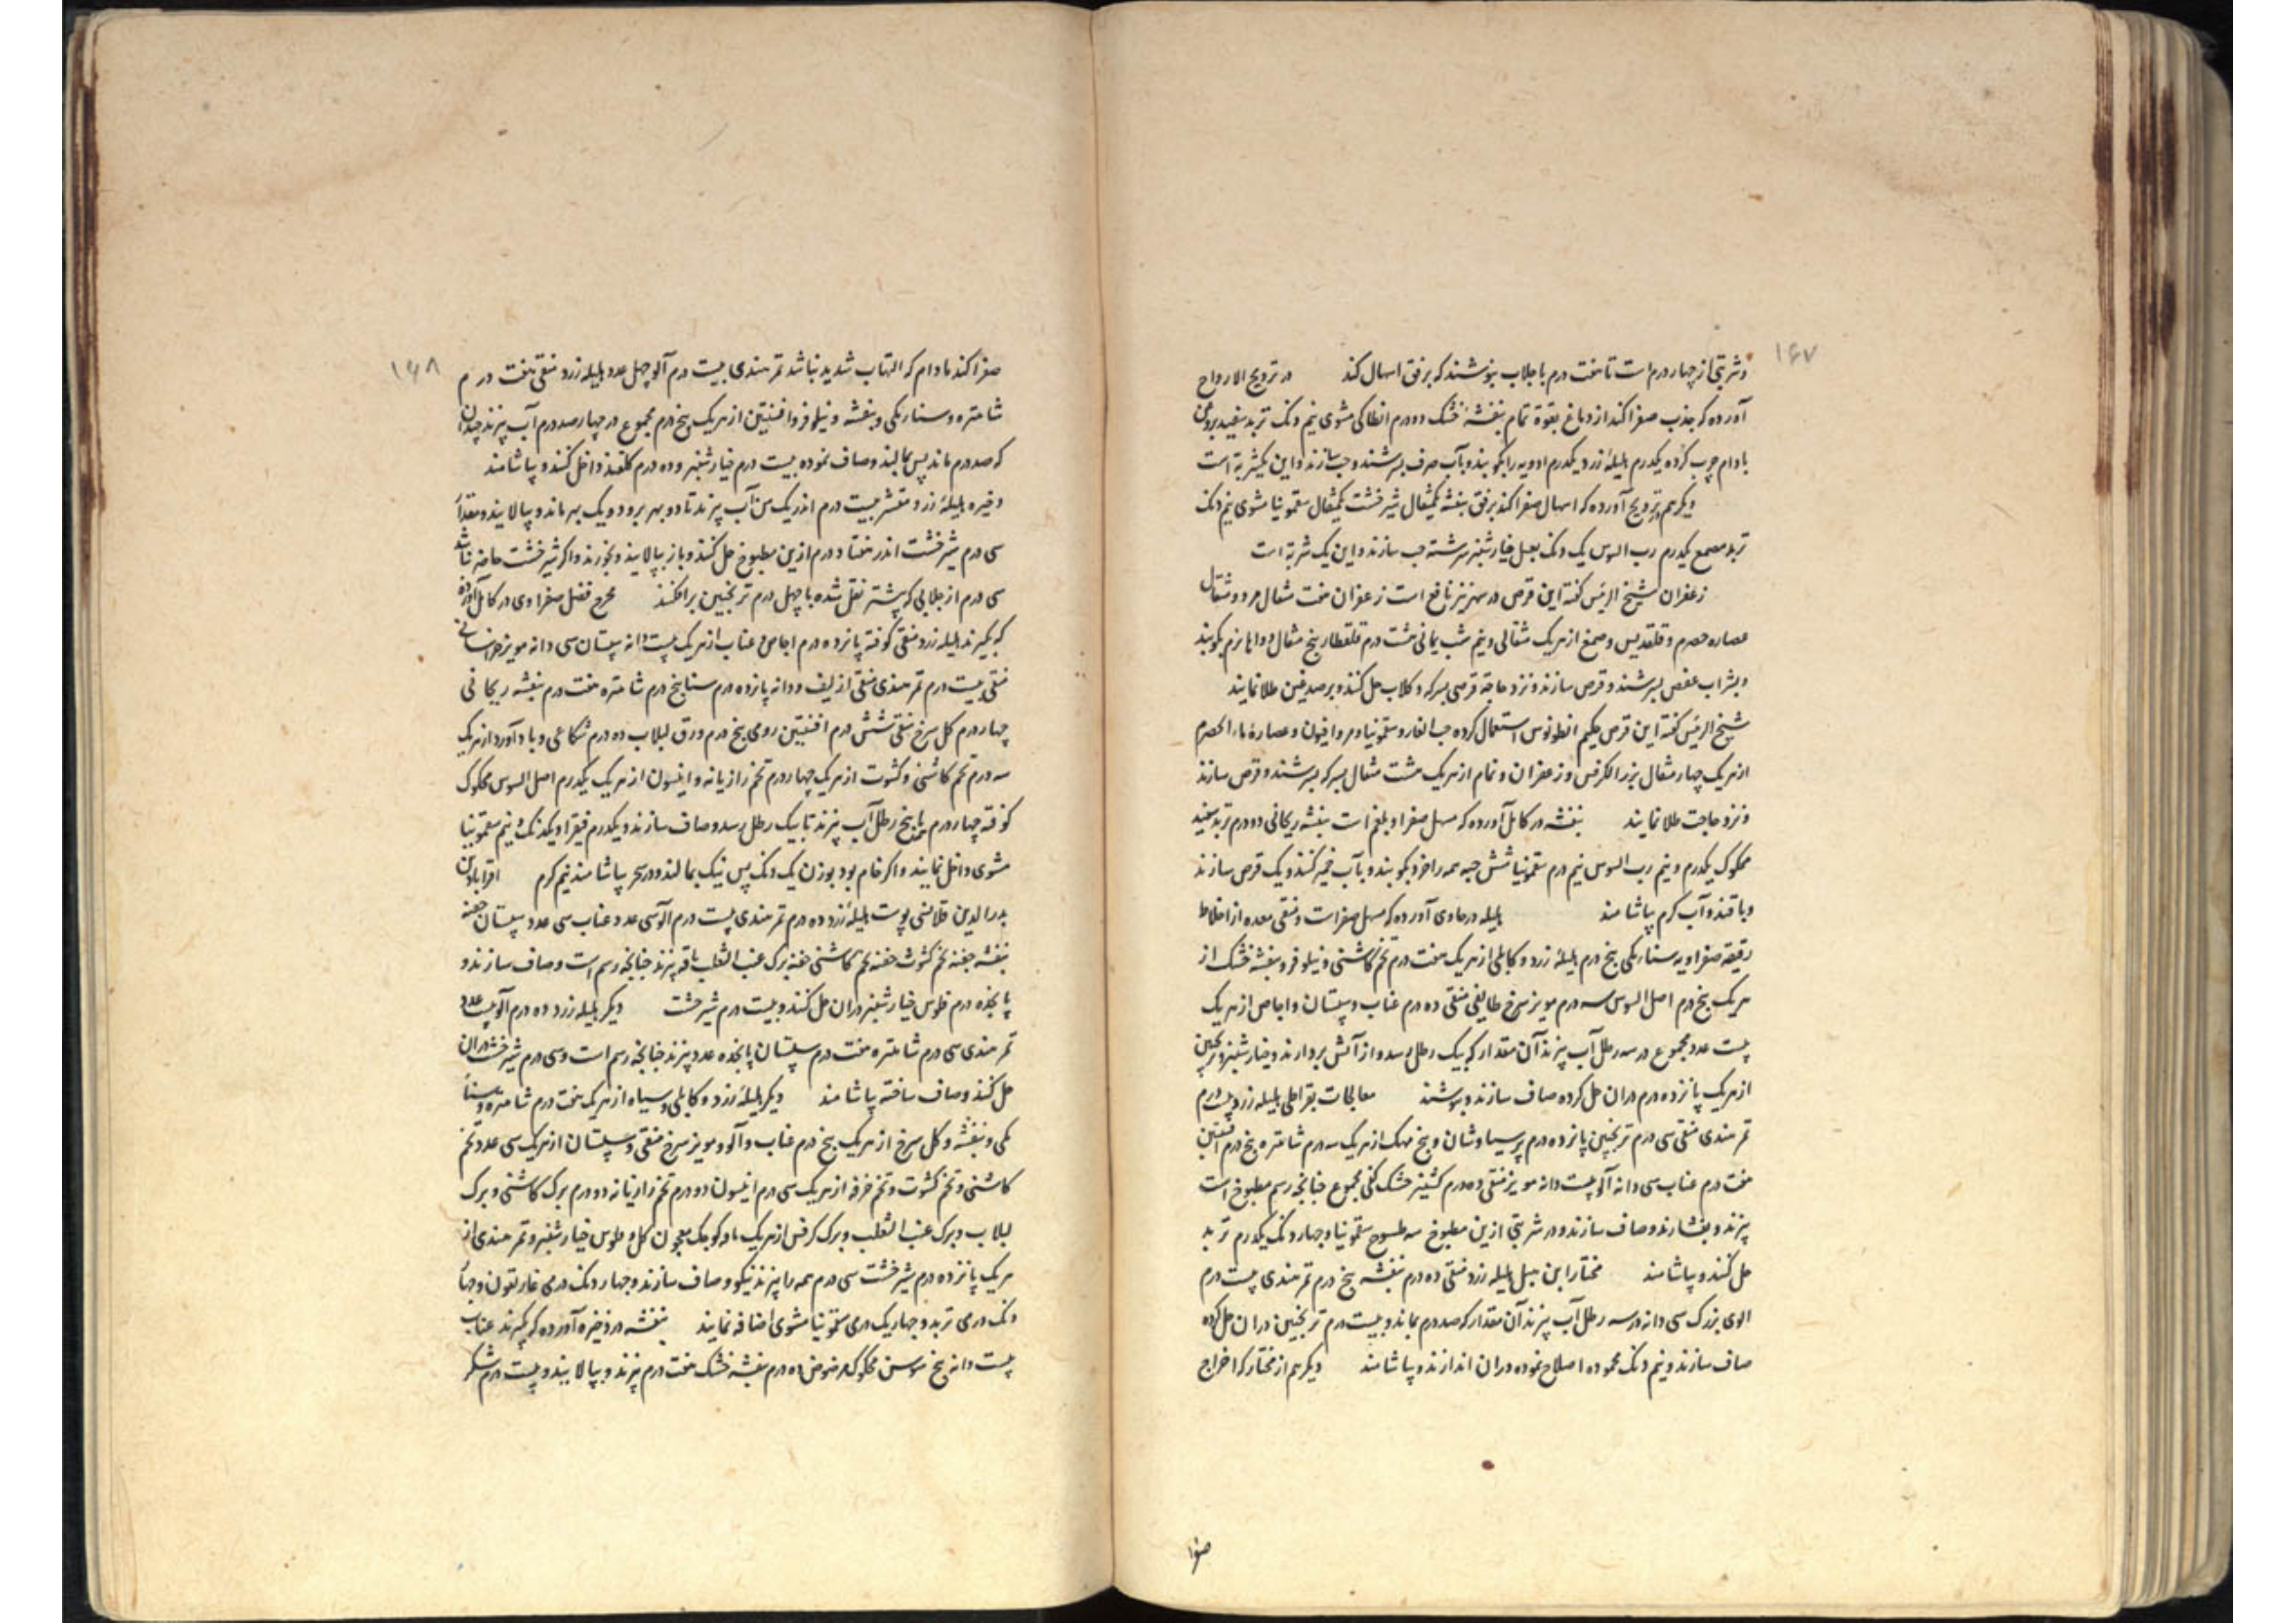 ۱۶۷
و شربتی از چهار درم است تا هفت درم با جلاب بنوشند که برفق اسهال کند در ترویح الارواح
آورده که جذب صفرا کند از دماغ بقوة تمام بنفشه خشک دو درم انطاکی مشوی نیم دنک تربد سفید بروغن
بادام چرب کرده یکدرم هلیله زرد یکدرم ادویه را بکوبند و بآب صرف بسرشند و حب سازند و این یکشربة است
دیگر هم در ترویح آورده که اسهال صفرا کند برفق بنفشه یکمثقال شیرخشت یکمثقال سقمونیا مشوی نیم دنک
تربد مصمغ یکدرم رب السوس یک دنک بعسل خیارشنبر سرشته حب سازند و این یک شربة است
زعفران شیخ الرئیس گفته این قرص در نیز نافع است زعفران هفت مثقال مر دو مثقال
عصاره حصرم و قلقدیس و صمغ از هریک مثقالی و نیم شب یمانی هشت درم قلقطار پنج مثقال دواها نرم بکوبند
و بشراب عفص بسرشند و قرص سازند و نزد حاجة قرصی بسرکه و کلاب حل کنند و بر صدغین طلا نمایند
شیخ الرئیس گفته این قرص حکیم انطونوس استعمال کرده حب الغار و سقمونیا و مر و افیون و عصاره ماء الحصرم
از هریک چهار مثقال بزر الکرفس و زعفران و نمام از هریک هشت مثقال بسرکه بسرشند و قرص سازند
و نزد حاجت طلا نمایند بنفشه در کامل آورده که مسهل صفرا و بلغم است بنفشه ریحانی دو درم تربد سفید
محکوک یکدرم و نیم رب السوس نیم درم سقمونیا شش حبه همه را خرد بکوبند و بآب خمیر کنند و یک قرص سازند
و با قند و آب کرم بیاشامند هلیله در حاوی آورده که مسهل صفراست و منقی معده از اخلاط
رقیقه صفراویه سنا مکی پنج درم هلیله زرد و کابلی از هریک هفت درم تخم کاشنی و نیلوفر و بنفشه خشک از
هریک پنج درم اصل السوس سه درم مویز سرخ طایفی منقی ده درم عناب و سپستان و اجاص از هریک
بیست عدد مجموع در سه رطل آب پزند آن مقدار که بیک رطل رسد و از آتش بردارند و خیارشنبر و ترنجبین
از هریک پانزده درم دران حل کرده صاف سازند و بنوشند معالجات بقراطی هلیله زرد بیست درم
تمر هندی منقی سی درم ترنجبین پانزده درم پرسیاوشان و بیخ مهک از هریک سه درم شاهتره پنج درم افسنتین
هفت درم عناب سی دانه آلو بیست دانه مویز منقی ده درم کشنیز خشک کفی مجموع چنانچه رسم مطبوخ است
پزند و بفشارند و صاف سازند و در شربتی ازین مطبوخ سه طسوج سقمونیا و چهار دنک یکدرم تربد
حل کنند و بیاشامند مختار ابن هبل هلیله زرد منقی ده درم بنفشه پنج درم تمر هندی بیست درم
الوی بزرگ سی دانه در سه رطل آب پزند آن مقدار که صد درم بماند و بیست درم ترنجبین دران حل کرده
صاف سازند و نیم دنک محموده اصلاح نموده دران اندازند و بیاشامند دیگر هم از مختار که اخراج
صفرا
۱۶۸
صفرا کند مادام که التهاب شدید نباشد تمر هندی بیست درم آلو چهل عدد هلیله زرد منقی هفت درم
شاهتره و سنا مکی و بنفشه و نیلوفر و افسنتین از هریک پنج درم مجموع در چهارصد درم آب پزند چندان
که صد درم ماند پس بمالند و صاف نموده بیست درم خیارشنبر و ده درم کلقند داخل کنند و بیاشامند
ذخیره هلیله زرد مقشر بیست درم اندر یک من آب پزند تا دو بهر برود و یک بهر ماند و بپالایند و مقدار
سی درم شیرخشت اندر هفتاد درم ازین مطبوخ حل کنند و باز بپالایند و بخورند و اکر شیرخشت حاضر نباشد
سی درم از جلابی که پیشتر نقل شده با چهل درم ترنجبین برافکنند مخرج فضل صفراوی در کامل آورده
که بگیرند هلیله زرد منقی کوفته پانزده درم اجاص و عناب از هریک بیست دانه سپستان سی دانه مویز خراسانی
منقی بیست درم تمر هندی منقی از لیف و دانه پانزده درم سنا پنج درم شاهتره هفت درم بنفشه ریحانی
چهار درم کل سرخ منقی شش درم افسنتین رومی پنج درم ورق لبلاب ده درم شکاعی و بادآورد از هریک
سه درم تخم کاشنی و کشوت از هریک چهار درم تخم رازیانه و انیسون از هریک یکدرم اصل السوس محکوک
کوفته چهار درم با پنج رطل آب پزند تا بیک رطل رسد و صاف سازند و یکدرم فیقرا و یکدنک و نیم سقمونیا
مشوی داخل نمایند و اکر خام بود بوزن یک دنک پس نیک بمالند و در سحر بیاشامند نیم کرم اقرابادین
بدر الدین قلانسی پوست هلیله زرد ده درم تمر هندی بیست درم آلو سی عدد عناب سی عدد سپستان حفنه
بنفشه حفنه تخم کشوث حفنه تخم کاشنی حفنه برک عنب الثعلب باقه پزند چنانچه رسم است و صاف سازند و
پانزده درم فلوس خیارشنبر دران حل کنند و بیست درم شیرخشت دیگر هلیله زرد ده درم آلو بیست عدد
تمر هندی سی درم شاهتره هفت درم سپستان پانزده عدد پزند چنانچه رسم است و سی درم شیرخشت دران
حل کنند و صاف ساخته بیاشامند دیگر هلیله زرد و کابلی و سیاه از هریک هفت درم شاهتره و سنا
مکی و بنفشه و کل سرخ از هریک پنج درم عناب و آلو و مویز سرخ منقی و سپستان از هریک سی عدد تخم
کاشنی و تخم کشوت و تخم خرفه از هریک سی درم انیسون دو درم تخم رازیانه دو درم برک کاشنی و برک
لبلاب و برک عنب الثعلب و برک کرفس از هریک باقه کوچک معجون کل و فلوس خیارشنبر و تمر هندی از
هریک پانزده درم شیرخشت سی درم همه را پزند نیکو و صاف سازند و چهار دنک درمی غاریقون و چهار
دنک درمی تربد و چهاریک درمی سقمونیا مشوی اضافه نمایند بنفشه در ذخیره آورده که بگیرند عناب
بیست دانه بیخ سوسن محکوک مرضوض ده درم بنفشه خشک هفت درم پزند و بپالایند و بیست درم شکر